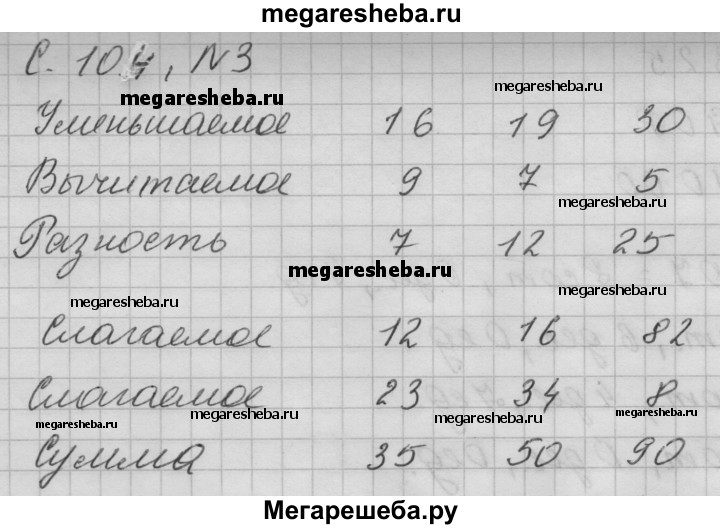 megaresheba.ru
С. 104, №3
megaresheba.ru
megaresheba.ru
Уменьшаемое 16 19 30
Вычитаемое 9 7 5
megaresheba.ru
Разность 7 12 25
megaresheba.ru
megaresheba.ru
Слагаемое 12 16 82
Слагаемое 23 34 8
megaresheba.ru
megaresheba.ru
megaresheba.ru
megaresheba.ru
Сумма 35 50 90
Мегарешеба.ру